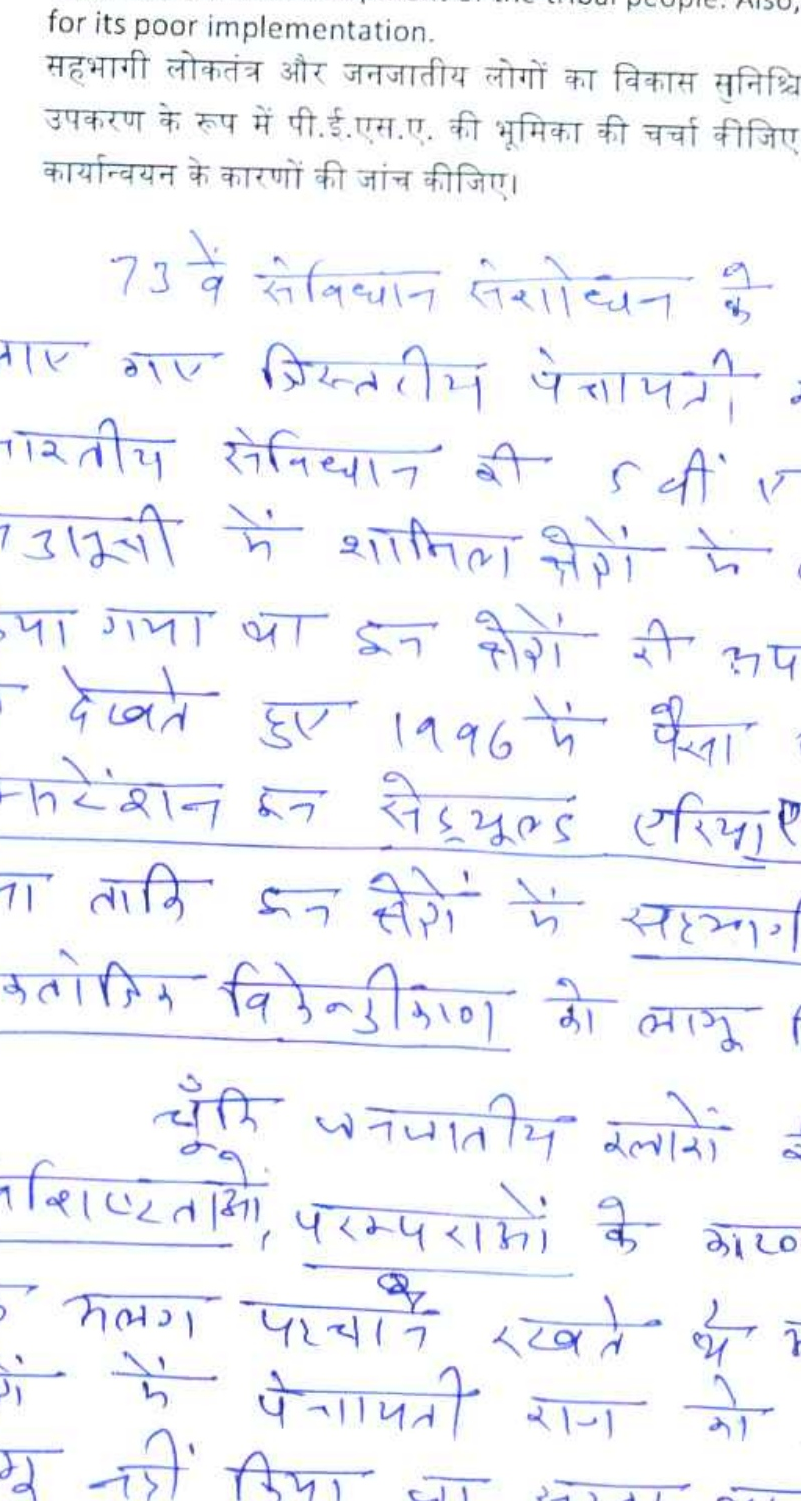 for its poor implementation.
सहभागी लोकतंत्र और जनजातीय लोगों का विकास सुनिश्चि
उपकरण के रूप में पी.ई.एस.ए. की भूमिका की चर्चा कीजिए
कार्यान्वयन के कारणों की जांच कीजिए।
73वें संविधान संशोधन के
गए त्रिस्तरीय पंचायती
भारतीय संविधान की 5वीं ए
में शामिल क्षेत्रों में
गया था इन क्षेत्रों की
देखते हुए 1996 में पैसा
इन सेड्यूल्ड एरियाए
ताकि इन क्षेत्रों में सहभाग
विकेन्द्रीकरण को लागू
चूँकि जनजातीय इलाकों
विशिष्टताओं, परम्पराओं के कारण
अलग पहचान रखते थे
में पंचायती राज को
नहीं किया जा